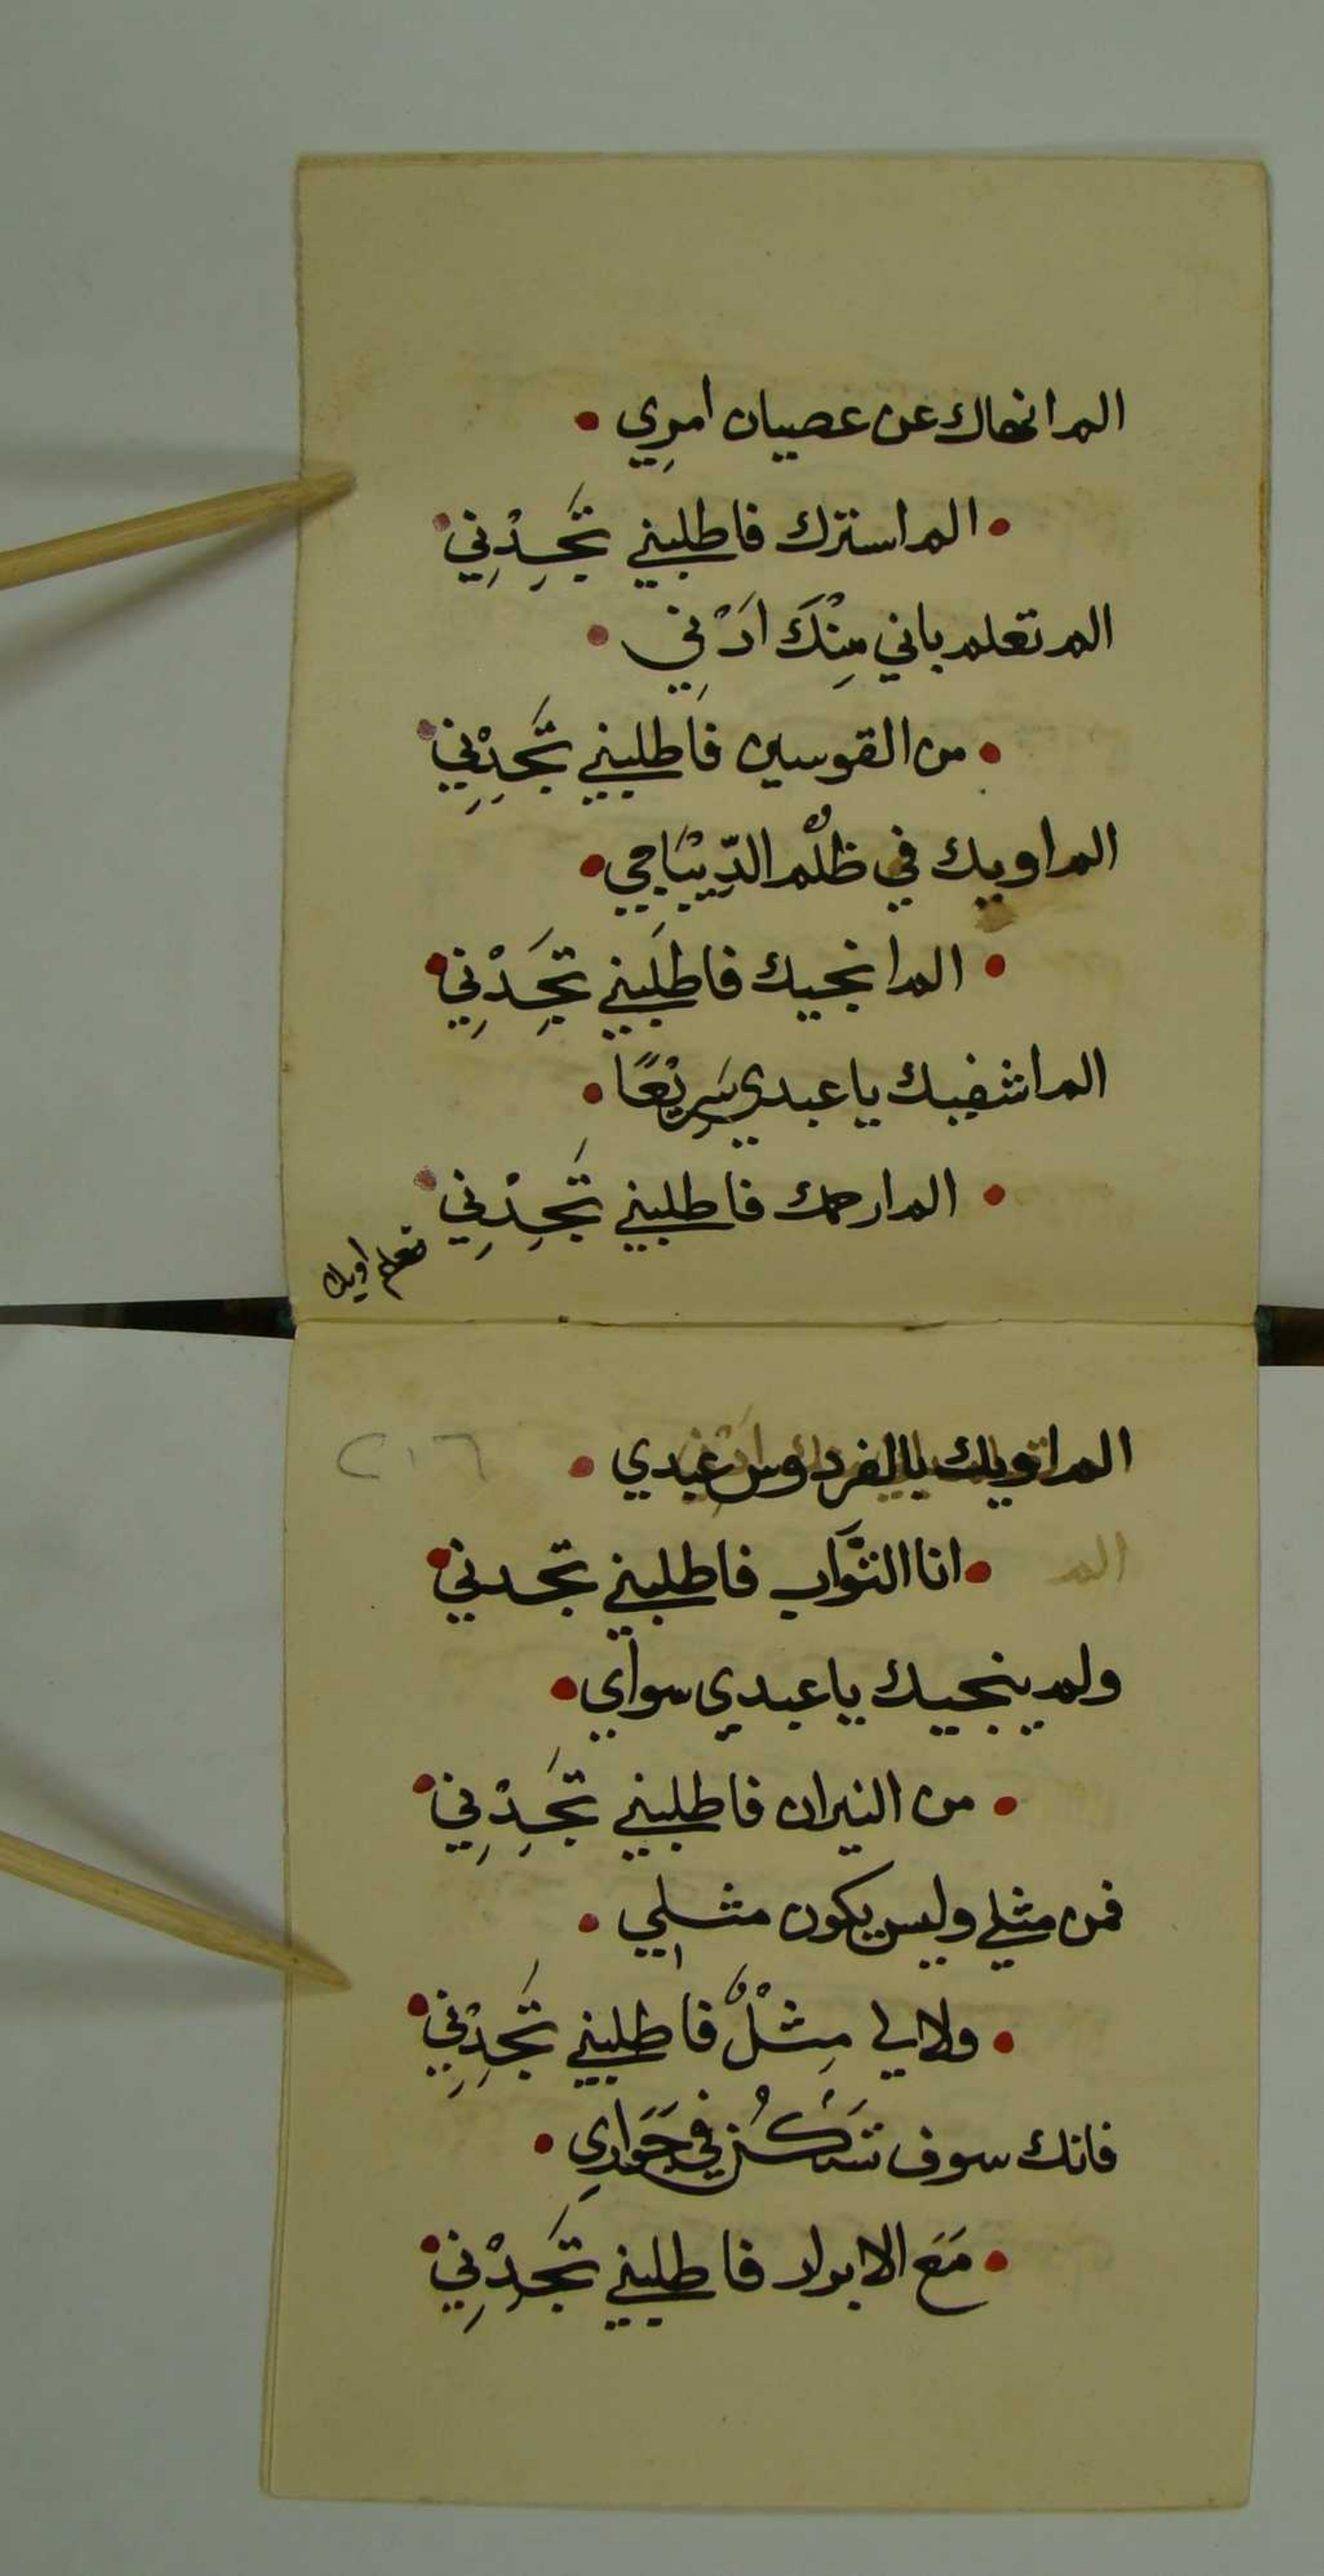 الم انهاك عن عصيان امرِي
الم استرك فاطلبني تَجِدْنِي
الم تعلم باني مِنْكَ اَدْنِي
من القوسين فاطلبني تَجِدْنِي
الم اويك في ظُلْم الدِّيَاجِي
الم انجيك فاطلبني تَجِدْنِي
الم اشفيك يا عبدي سَرِيْعًا
الم ارحمك فاطلبني تَجِدْنِي
الم اويك بالفردوس عبدي
٢١٦
انا التوَّاب فاطلبني تجدني
الم
ولم ينجيك يا عبدي سواي
من النيران فاطلبني تَجِدْنِي
فمن مثلي وليس يكون مثلي
ولا لي مِثْلٌ فاطلبني تَجِدْنِي
فانك سوف تَسْكُنُ في جَوَارِي
مَعَ الابرار فاطلبني تَجِدْنِي